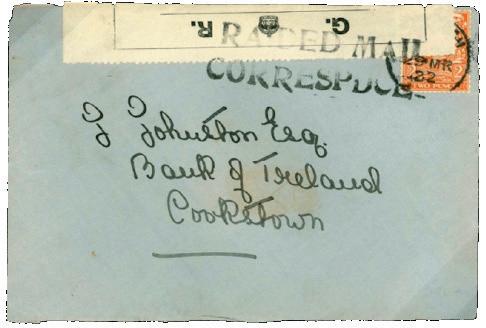 G.
R.
RAIDED MAIL
CORRESPDCE.
29 MR
22
TWO PENCE
J Johnston Esq.
Bank of Ireland
Cookstown